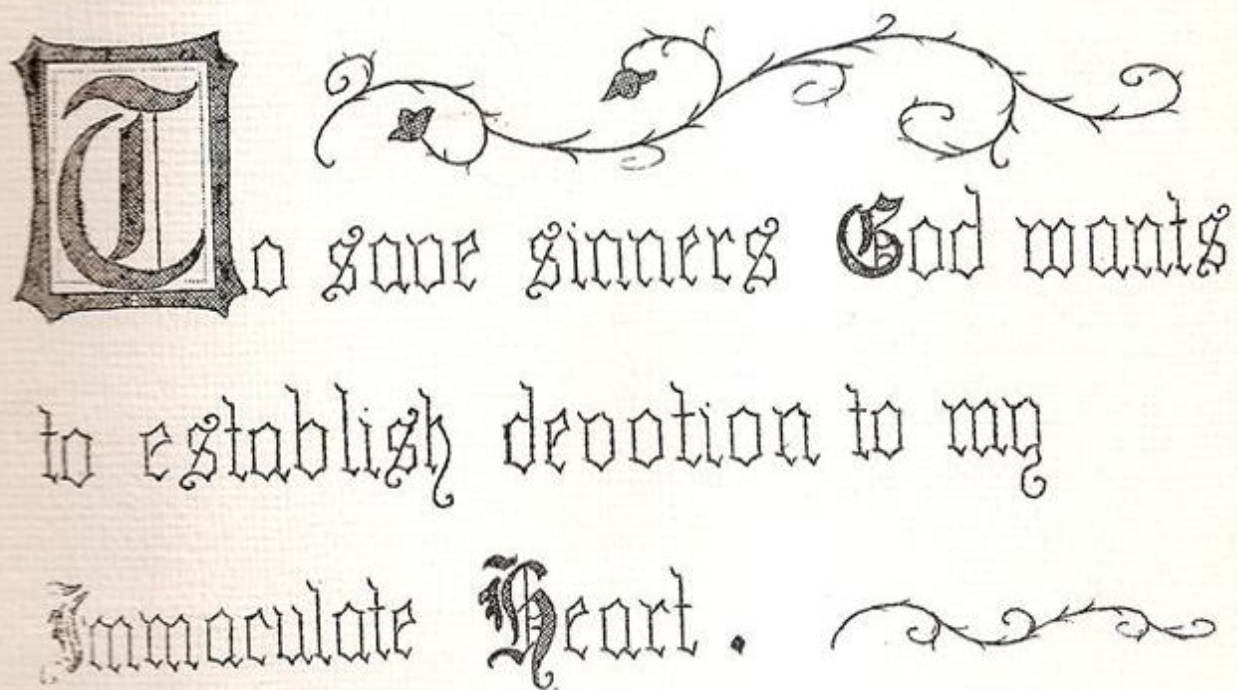 To save sinners God wants
to establish devotion to my
Immaculate Heart.